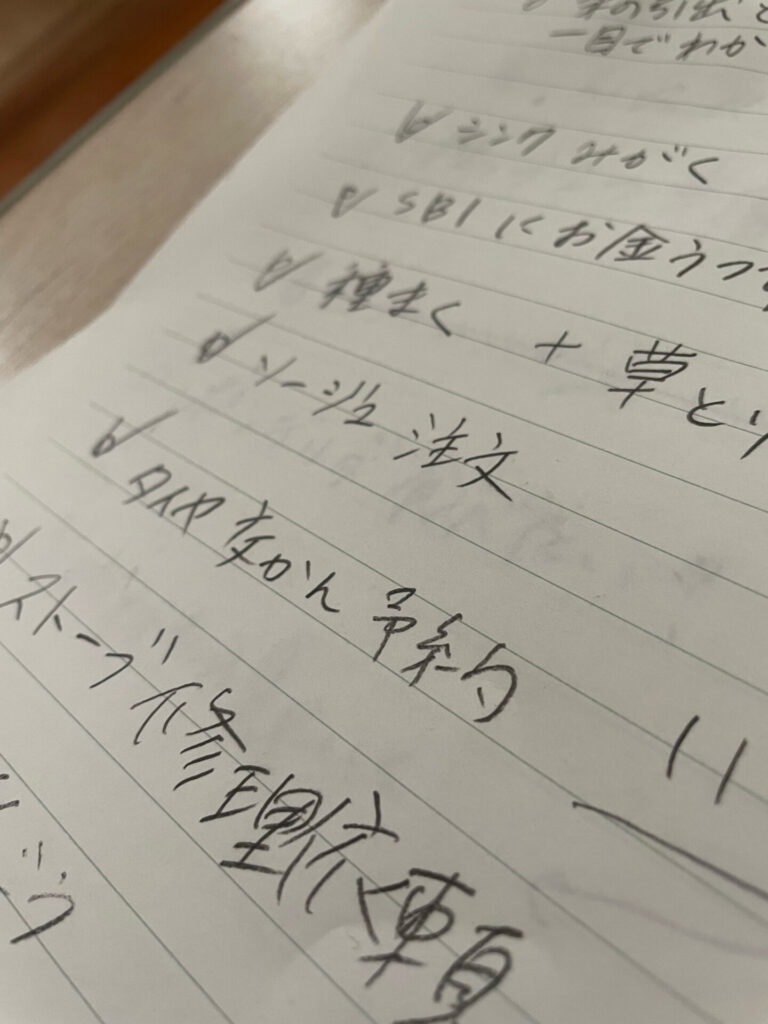 の引出
一目でわか
シンクみがく
SBIにお金うつ
種まく + 草とり
ソージュ 注文
タイヤ交かん 予約
ストーブ修理依頼